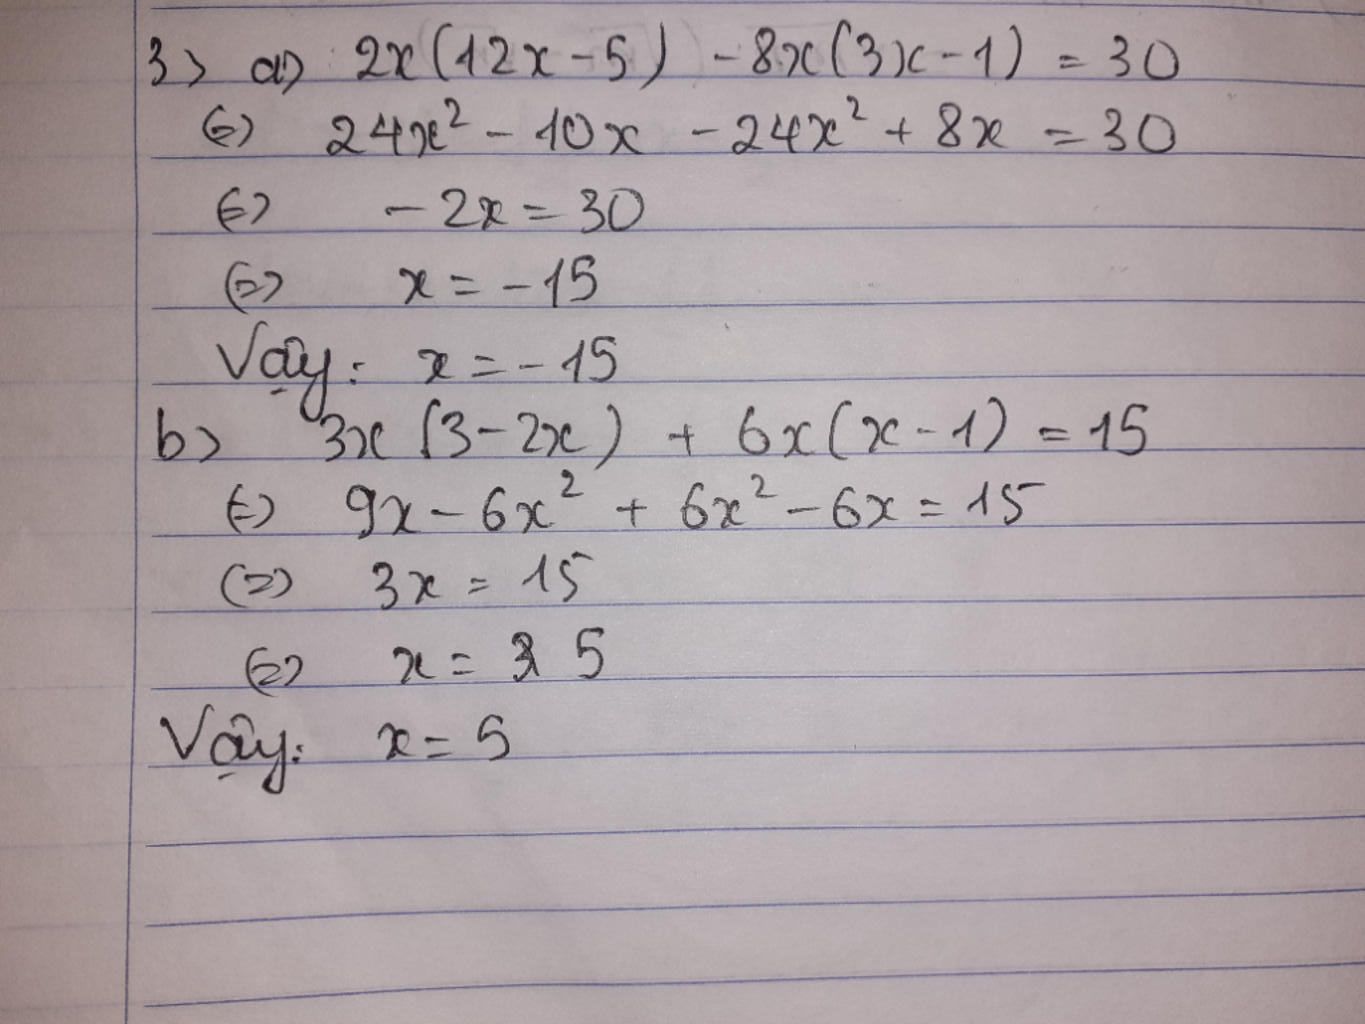 3> a) 2x(12x-5) - 8x(3x-1) = 30
(=) 24x² - 10x - 24x² + 8x = 30
(=) - 2x = 30
(=) x = -15
Vậy: x = -15
b> 3x(3-2x) + 6x(x-1) = 15
(=) 9x - 6x² + 6x² - 6x = 15
(=) 3x = 15
(=) x = 5
Vậy: x = 5